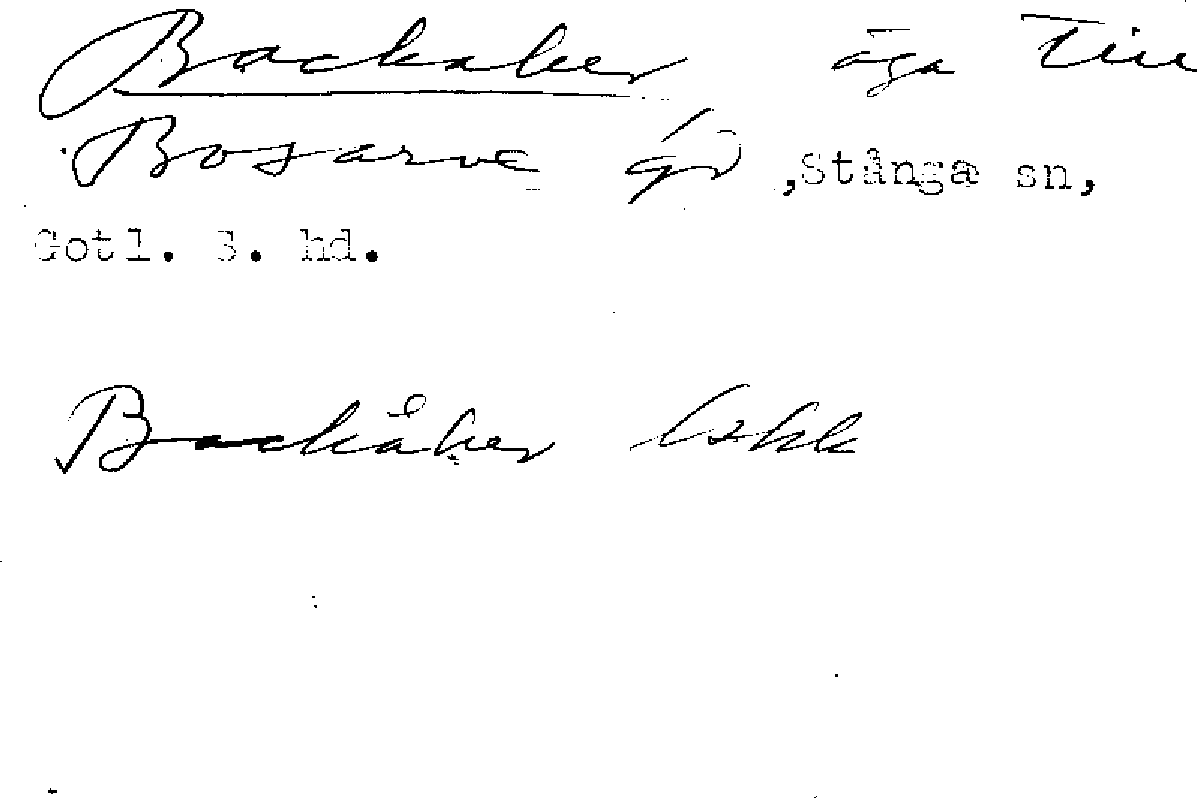 Backaker äga till
Bosarve gd, Stånga sn,
Gotl. S. hd.
Backåker Lskk